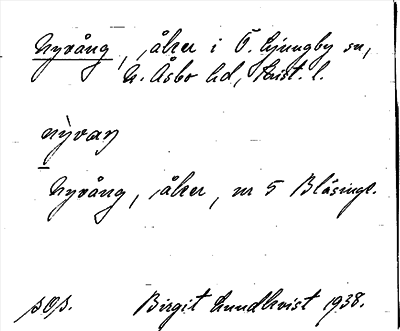 Nyvång, åker i Ö. Ljungby sn,
N. Åsbo hd, Krist. l.
nỳvaŋ
Nyvång, åker, nr 5 Blåsinge.
sOs. Birgit Lundkvist 1938.